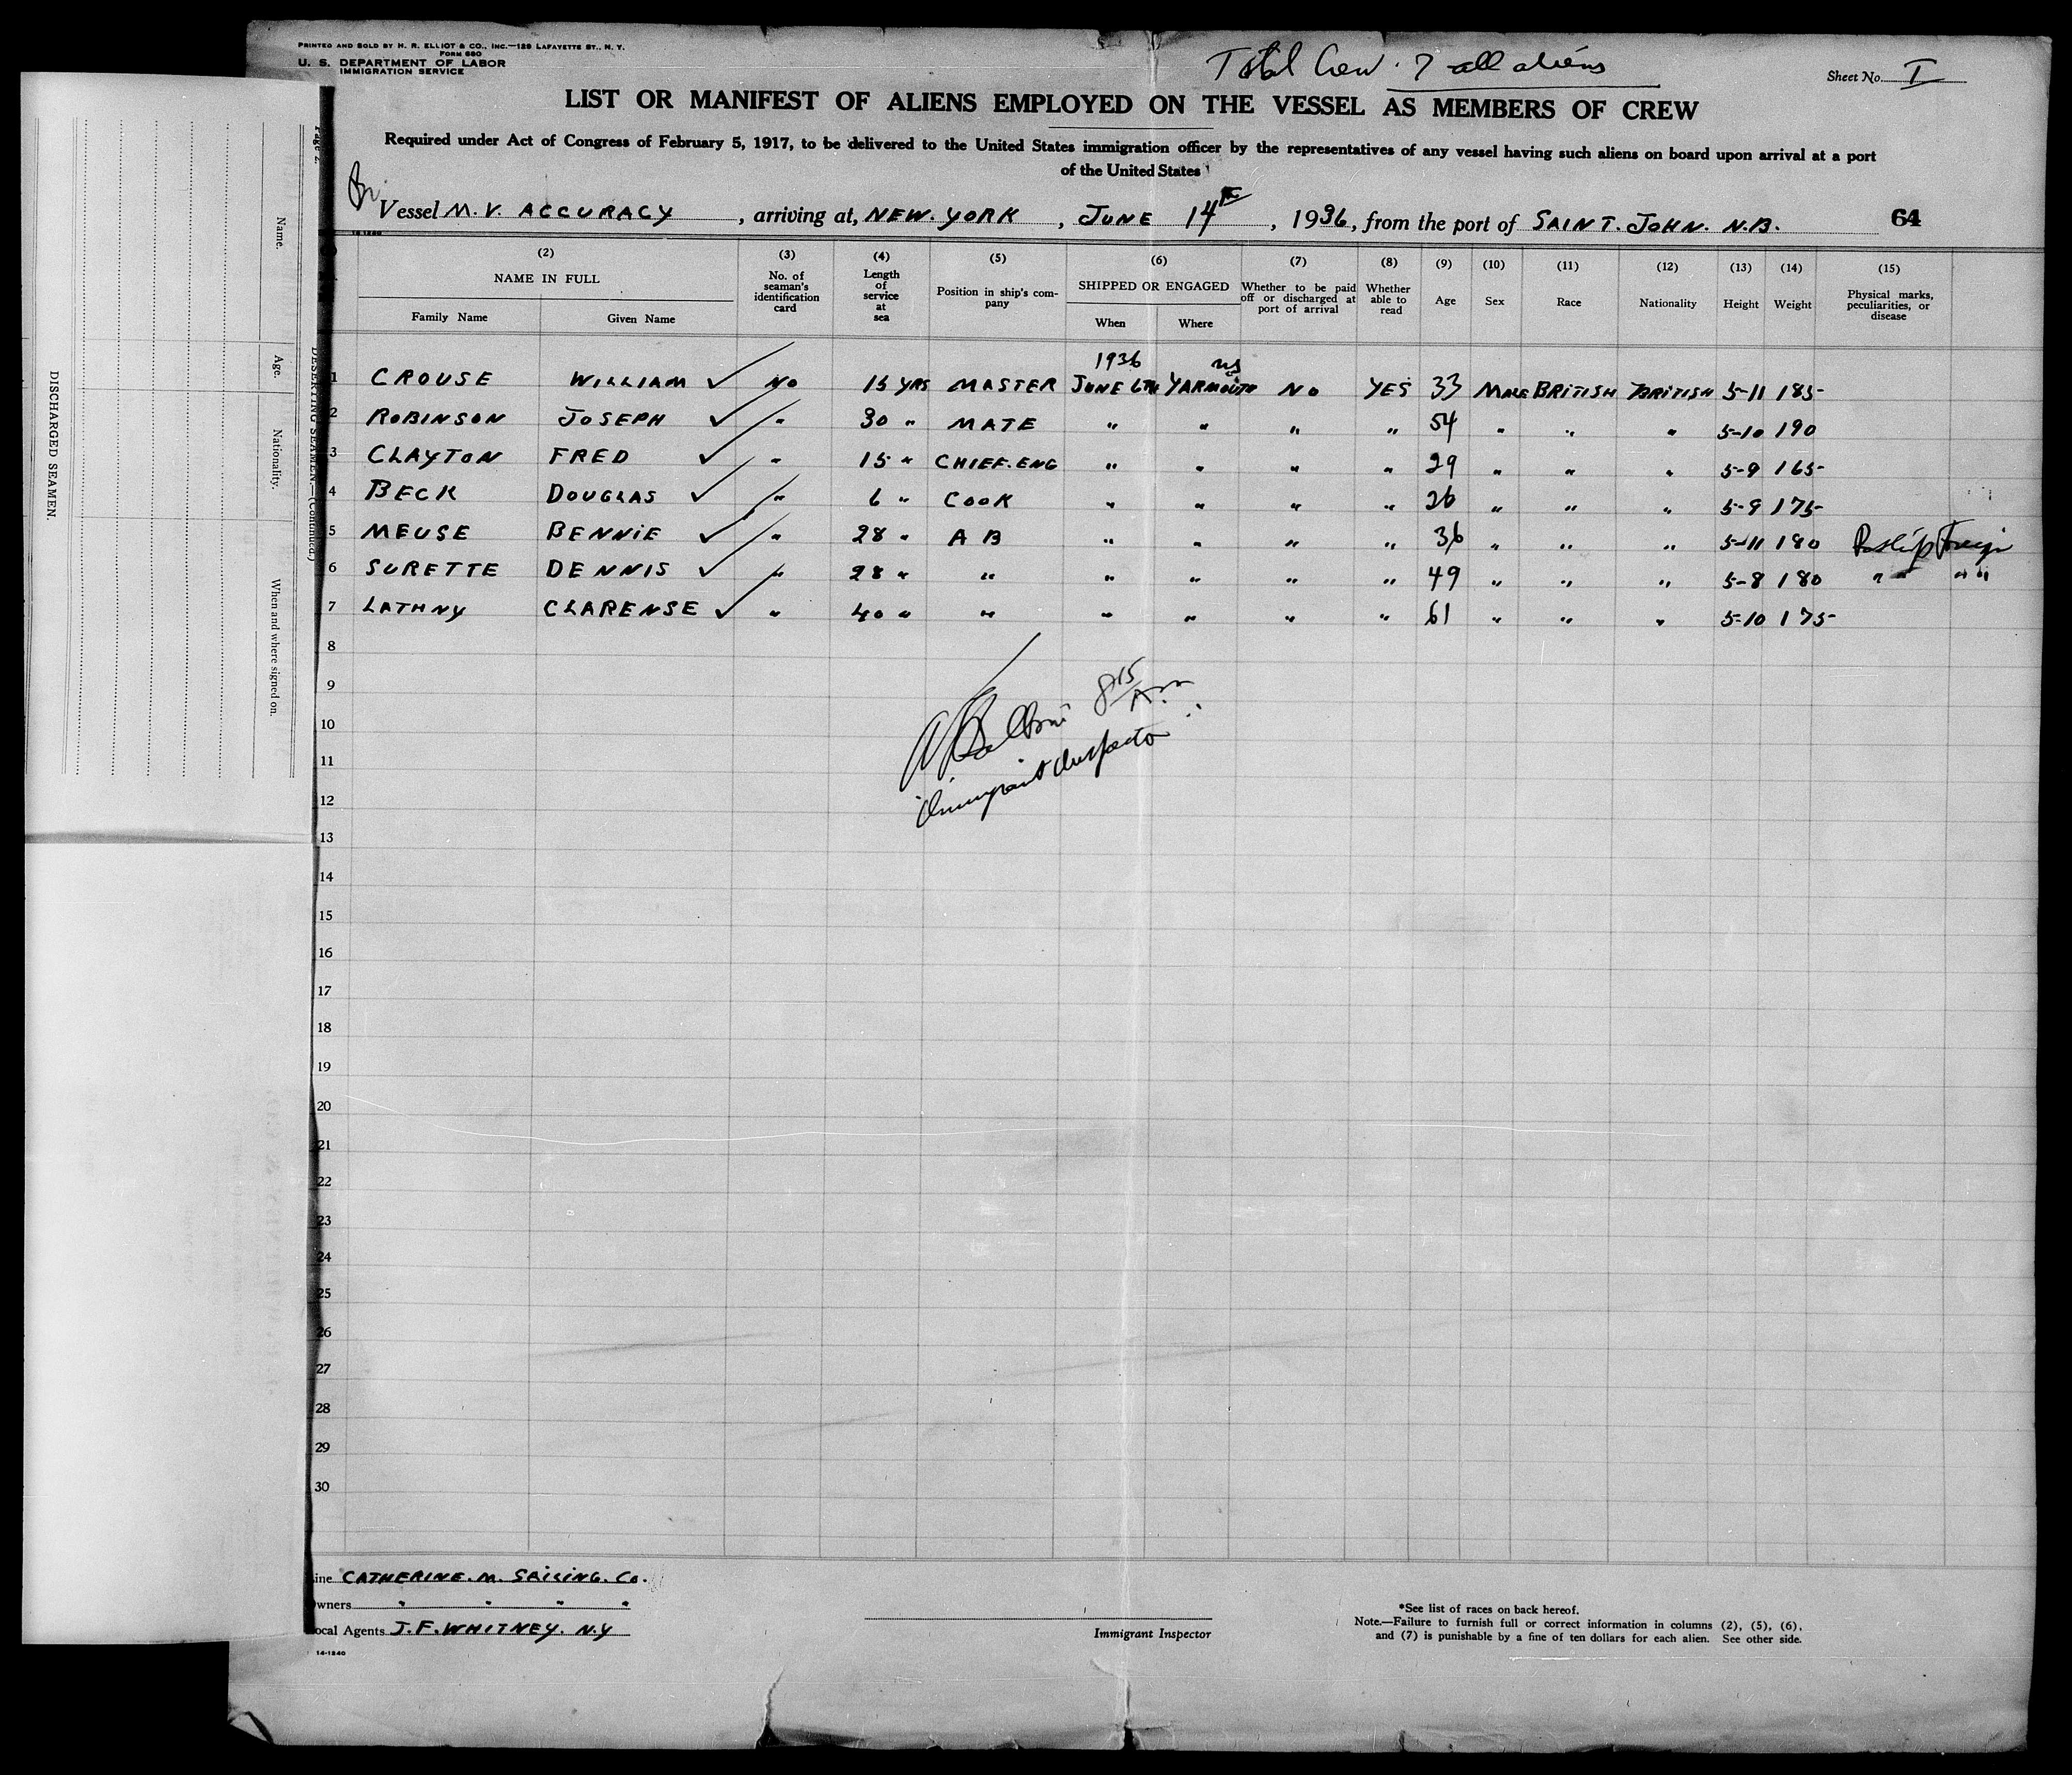 PRINTED AND SOLD BY H. R. ELLIOT & CO., INC.—129 LAFAYETTE ST., N. Y.
FORM 680
U. S. DEPARTMENT OF LABOR
IMMIGRATION SERVICE
Total Crew. 7 all aliens
Sheet No. I
LIST OR MANIFEST OF ALIENS EMPLOYED ON THE VESSEL AS MEMBERS OF CREW
Required under Act of Congress of February 5, 1917, to be delivered to the United States immigration officer by the representatives of any vessel having such aliens on board upon arrival at a port
of the United States
Vessel M.V. ACCURACY, arriving at, NEW. YORK, JUNE 14th, 1936, from the port of SAINT. JOHN. N.B. 64
(2) (3) (4) (5) (6) (7) (8) (9) (10) (11) (12) (13) (14) (15)
NAME IN FULL
Family Name Given Name
No. of seaman's identification card
Length of service at sea
Position in ship's company
SHIPPED OR ENGAGED
When Where
Whether to be paid off or discharged at port of arrival
Whether able to read
Age Sex Race Nationality Height Weight
Physical marks, peculiarities, or disease
1936 NS
1 CROUSE WILLIAM ✓ NO 15 YRS MASTER JUNE 6TH YARMOUTH NO YES 33 MALE BRITISH BRITISH 5-11 185
2 ROBINSON JOSEPH ✓ " 30 " MATE " " " " 54 " " " 5-10 190
3 CLAYTON FRED ✓ " 15 " CHIEF. ENG " " " " 29 " " " 5-9 165
4 BECK DOUGLAS ✓ " 6 " COOK " " " " 26 " " " 5-9 175
5 MEUSE BENNIE ✓ " 28 " A B " " " " 36 " " " 5-11 180
6 SURETTE DENNIS ✓ " 28 " " " " " " 49 " " " 5-8 180 " " " "
7 LATHNY CLARENSE ✓ " 40 " " " " " " 61 " " " 5-10 175
8
9
10
11
12
13
14
15
16
17
18
19
20
21
22
23
24
25
26
27
28
29
30
8 15 A.m
Immigrant Inspector
ine CATHERINE. M. SAILING. Co.
Owners " " " "
ocal Agents J. F. WHITNEY. N.Y
14-1240
Immigrant Inspector
*See list of races on back hereof.
Note.—Failure to furnish full or correct information in columns (2), (5), (6),
and (7) is punishable by a fine of ten dollars for each alien. See other side.
Page 2
DESERTING SEAMEN.—(Continued.)
Name. Age. Nationality. When and where signed on.
DISCHARGED SEAMEN.